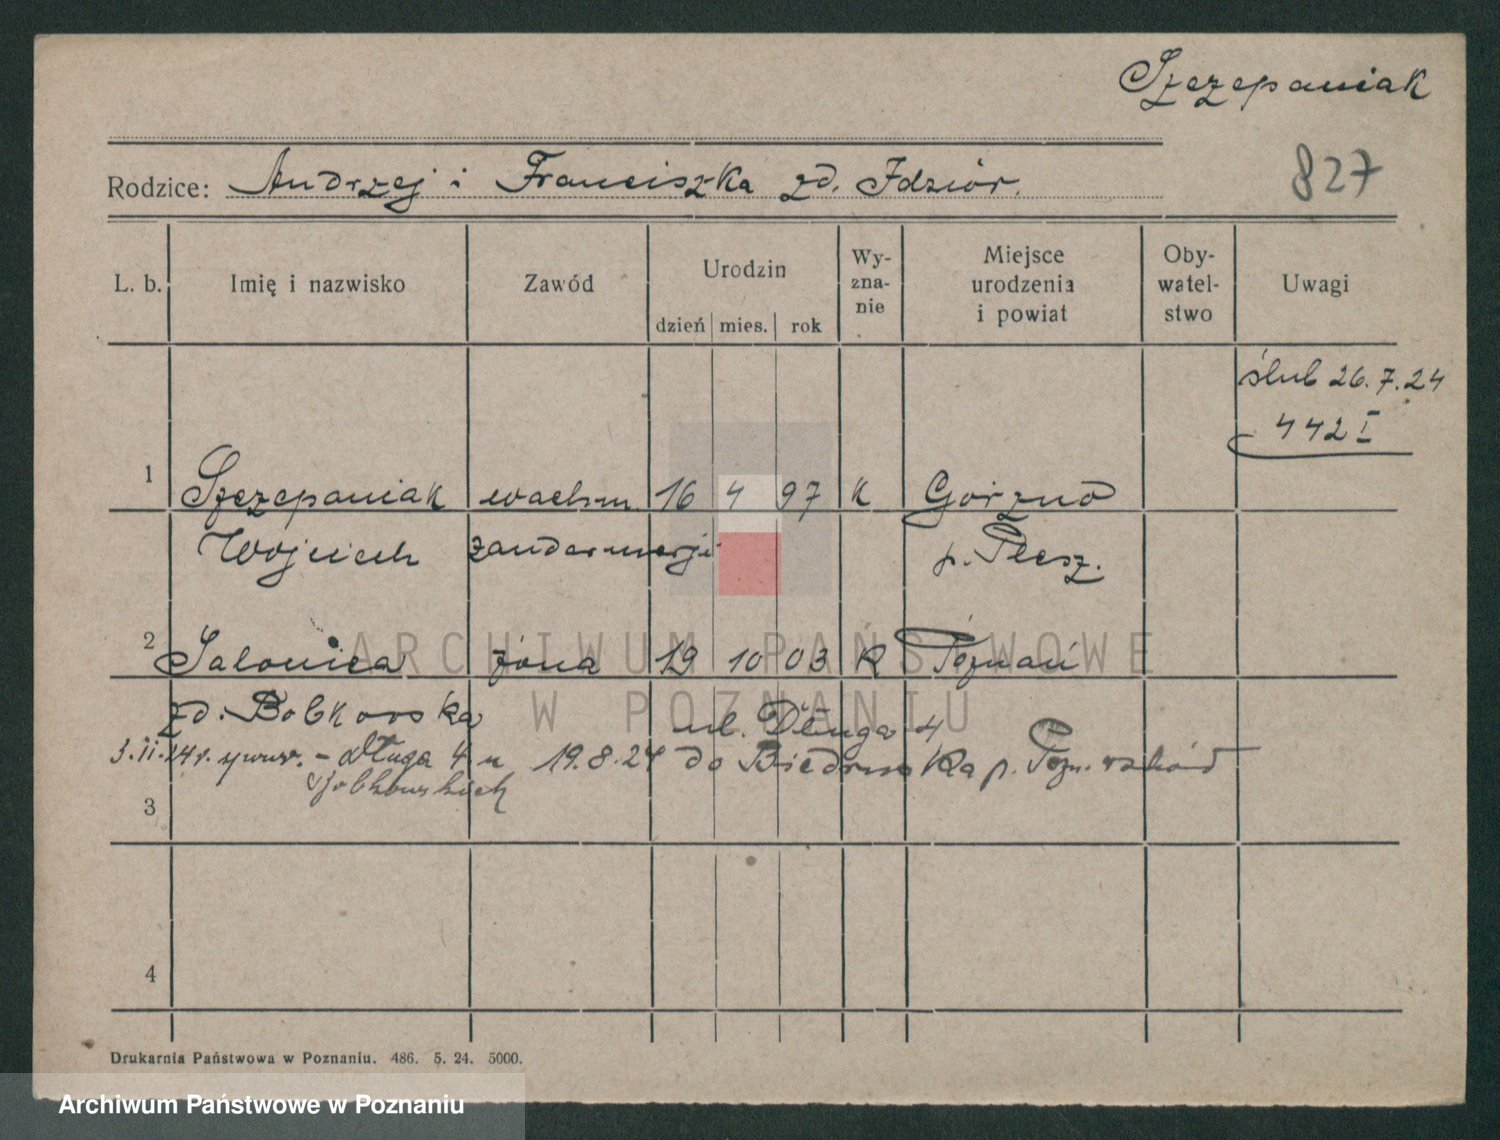 Szczepaniak
827
Rodzice: Andrzej i Franciszka zd. Idziór.
L. b. Imię i nazwisko Zawód Urodzin dzień mies. rok Wyznanie Miejsce urodzenia i powiat Obywatelstwo Uwagi
ślub 26.7.24
442 I
1 Szczepaniak wachm. 16 4 97 K Górzno
Wojciech żandarmerji p. Plesz.
2 Salomea żona 19 10 03 K Poznań
zd. Bobkowska ul. Długa 4
3.II.24r. - długa 4 u 19.8.24 do Biedruska p. Pozn. wschód
Bobkowskich
3
4
Drukarnia Państwowa w Poznaniu. 486. 5. 24. 5000.
ARCHIWUM PAŃSTWOWE
W POZNANIU
Archiwum Państwowe w Poznaniu